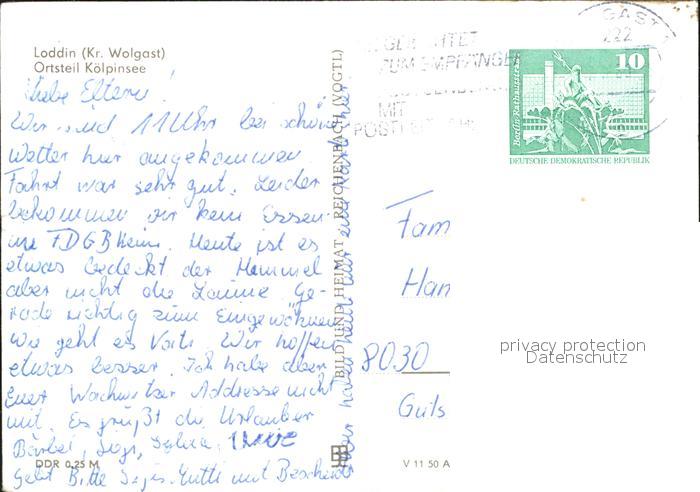 Loddin (Kr. Wolgast)
Ortsteil Kölpinsee
Liebe Eltern!
Wir sind 11 Uhr bei schön
Wetter hier angekommen
Fahrt war sehr gut. Leider
bekommen wir kein Essen
im FDGB Heim. Heute ist es
etwas bedeckt der Himmel
aber nicht die Laune. Ge-
rade richtig zum Eingewöhnen
Wie geht es Vati. Wir hoffen
etwas besser. Ich habe aber
Euer Wachwitzer Addresse nicht
mit. Es grüßt die Urlauber
Bärbel, Sylvia,
Gebt Bitte Mutti mit Bescheid
DDR 0,25 M
BILD UND HEIMAT REICHENBACH (VOGTL)
ZUM EMPFÄNGER
MIT
GAST
222
10
Berlin, Rathausstraße
DEUTSCHE DEMOKRATISCHE REPUBLIK
Fam
Han
8030
Guts
privacy protection
Datenschutz
V 11 50 A